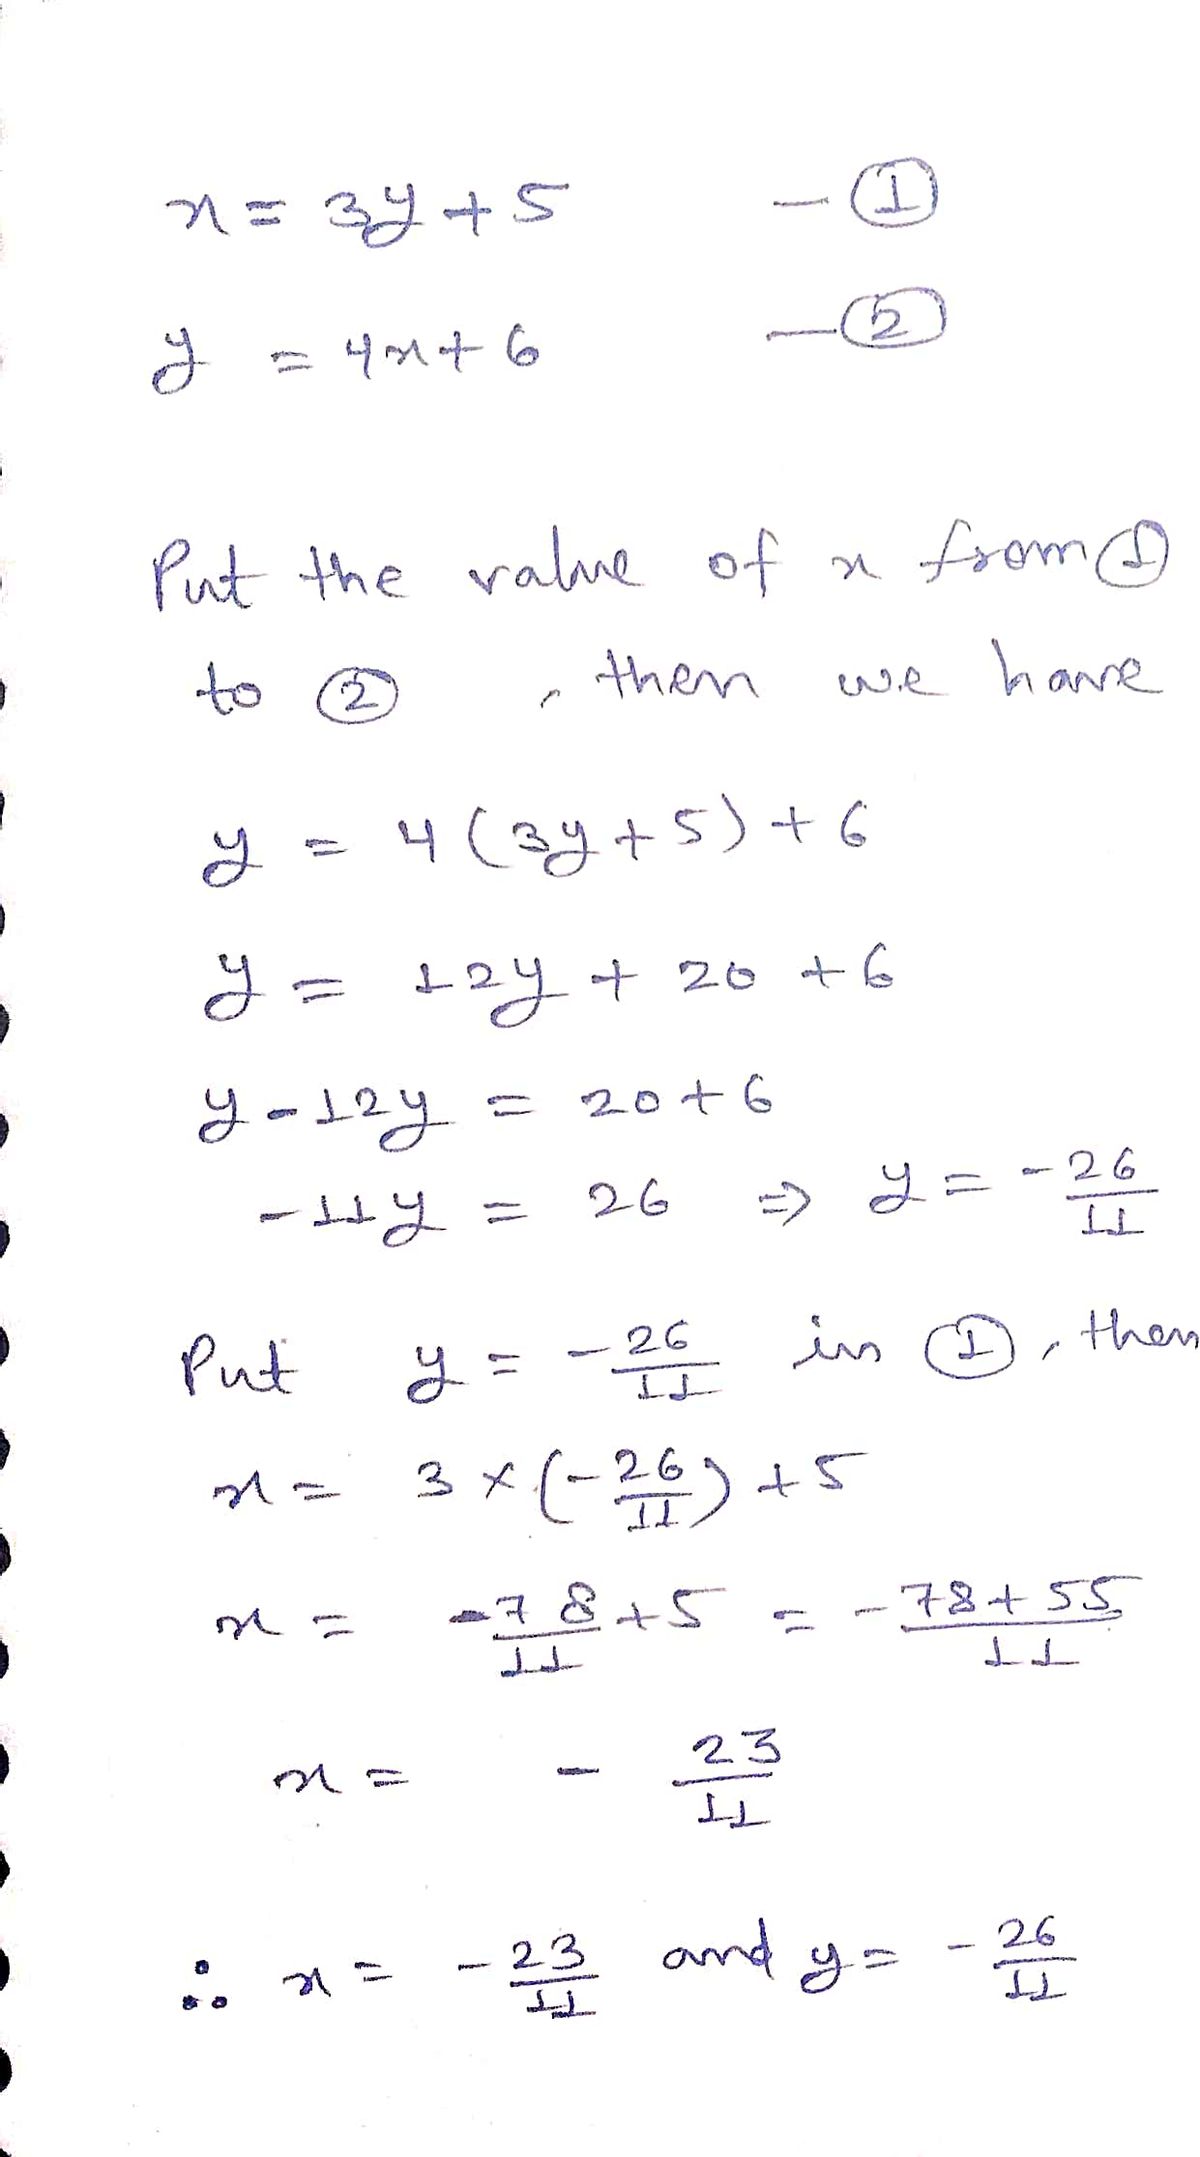 x = 3y + 5 - ①
y = 4x + 6 - ②
Put the value of x from ①
to ② , then we have
y = 4 (3y + 5) + 6
y = 12y + 20 + 6
y - 12y = 20 + 6
-11y = 26 ⇒ y = -26/11
Put y = -26/11 in ①, then
x = 3 × (-26/11) + 5
x = -78/11 + 5 = -78+55/11
x = - 23/11
∴ x = -23/11 and y = -26/11